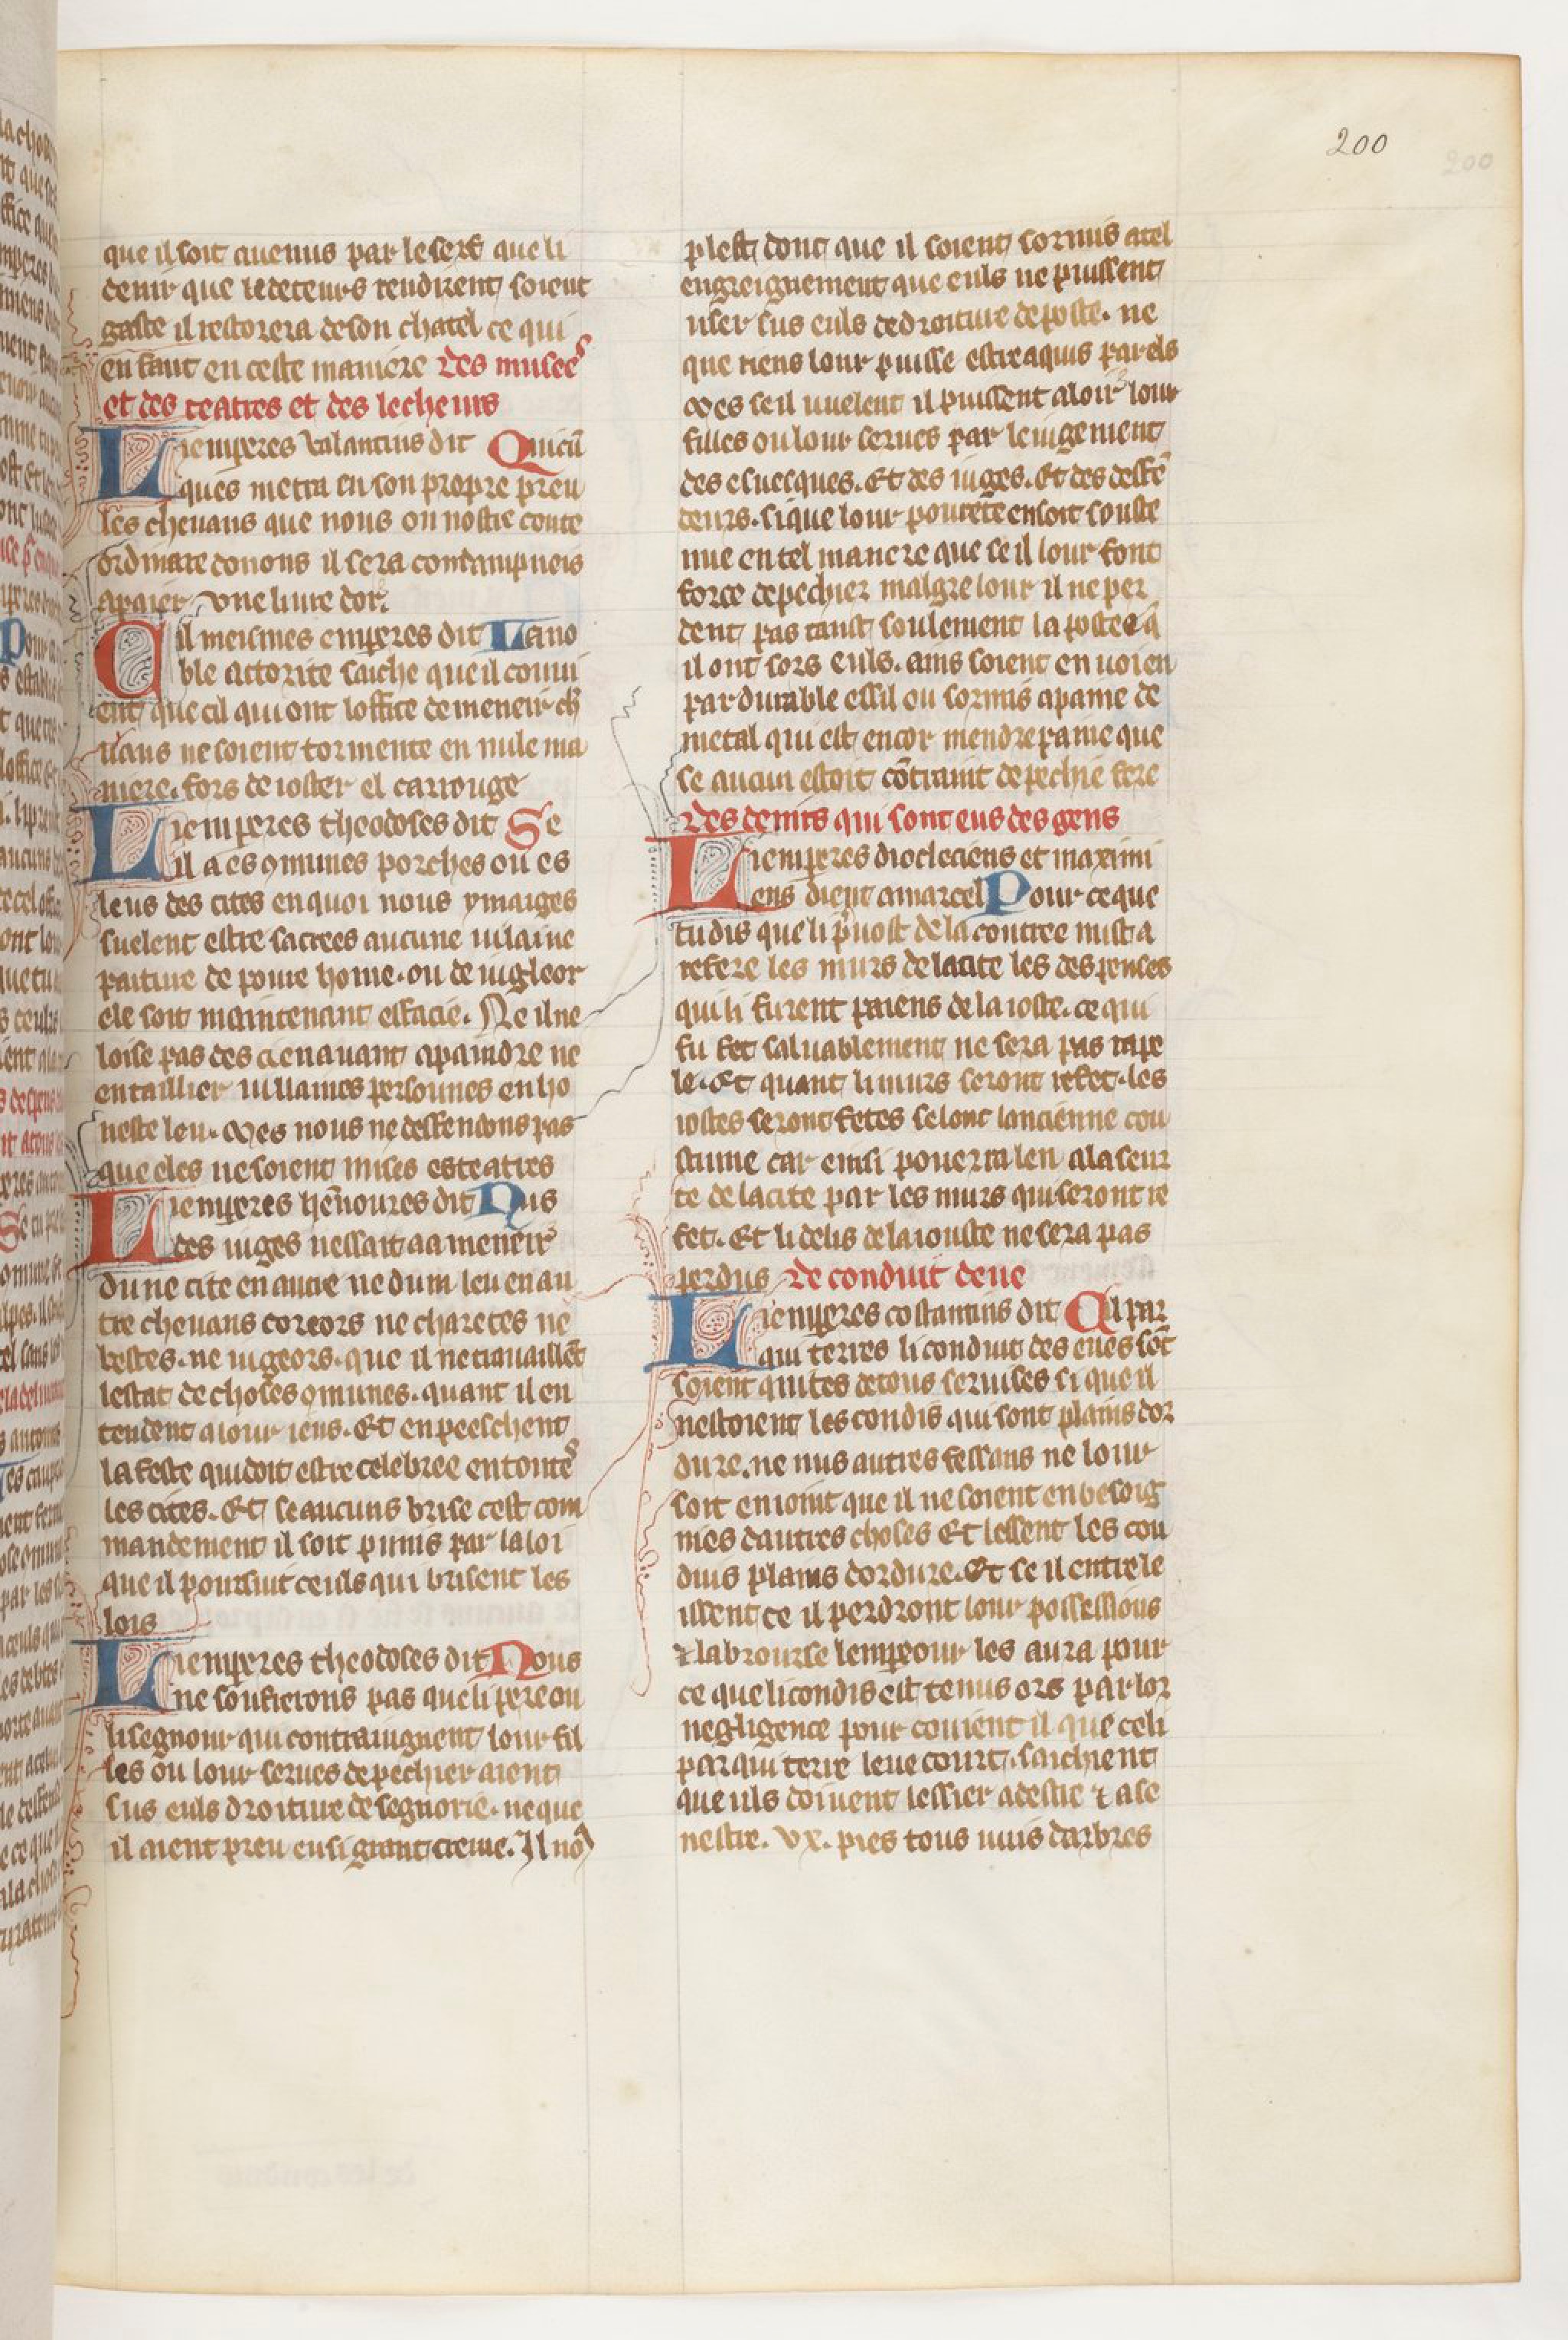 200
que il soit auenus par le serf que li
denir que le deteurs rendirent soient
gaste il restorera de son chatel ce qui
en faut en ceste maniere Des musees
et des teatres et des lecheurs
Li emperes valantins dit Quicū
ques metra en son propre preu
les cheuaus que nous ou nostre conte
ordinaire donons il sera condampneis
a paier vne liure dor.
Cil meismes emperes dit La no
ble attorite saiche que il conui
ent que cil qui ont loffice de meneir ch
uaus ne soient tormente en nule ma
niere. fors de ioster el carrouge
Li emperes theodoses dit Se
il a es ꝯmunes porches ou es
leus des cites en quoi nous ymaiges
suelent estre sacrees aucune uilaine
paiture de poure home. ou de iugleor
ele soit maintenant effacie. Ne il ne
loise pas des ci en auant a paindre ne
entaillier uillaines persounes en ho
neste leu. Mes nous ne deffendons pas
que eles ne soient mises es teatres
Li emperes hēnoures dit Nus
des iuges nessait a ameneir
dune cite en autre ne dum leu en au
tre cheuaus coreors ne charetes ne
bestes. ne iugeors. que il ne trauaillēt
lestat de choses ꝯmunes. quant il en
tendent a lour iens. Et enpeeschent
la feste qui doit estre celebree en toutes
les cites. Et se aucuns brise cest com
mandement il soit punis par la loi
que il poursuit ceuls qui brisent les
lois
Li emperes theodoses dit Nous
ne soufferons pas que li pere ou
li segnour qui contraignent lour fil
les ou lour serues de pechier aient
sus euls droiture de segnorie. ne que
il aient preu en si grant creme. Il no
plest donc que il soient sormis a tel
engreignement que euls ne puissent
user sus euls de droiture de poste. ne
que riens lour puisse estre aquis par els
Mes se il uuelent il puissent aloir lour
filles ou lour serues par le iugement
des esuesques. Et des iuges. Et des deffē
deurs. si que lour pourete en soit souste
nue en tel maniere que se il lour font
force de pechier malgre lour il ne per
dent pas tant soulement la poste q̄
il ont sors euls. ains soient en uoie en
pardurable essil ou sormis a paine de
metal qui est encor mendre paine que
se aucun estoit cōtraint de pechie fere
Des demrs qui sont eus des gens
Li emperes diocleciens et maximi
ens dient a marcel Pour ce que
tu dis que li puost de la contree mist a
refere les murs de la cite les despenses
qui li furent paiens de la ioste. ce qui
fu fet saluablement ne sera pas rape
le. Et quant li murs seront refet. les
iostes seront fetes selonc lancienne cou
stume car einsi pouerra len a la seur
te de la cite par les murs qui seront re
fet. Et li delis de la iouste ne sera pas
perdus De conduit deue
Li emperes costantins dit Cil par
qui terres li conduit des eues sōt
soient quites de tous seruises si que il
nestoient les condis qui sont plains dor
dure. ne nus autres fessans ne lour
soit enioint que il ne soient enbesoig
nies dautres choses Et lessent les con
duis plains dordure. Et se il entrele
issent ce il perdront lour possessions
⁊ la brourse lempeour les aura pour
ce que li condis est tenus ors par lor
negligence pour couient il que celi
par qui terre leue court. saichient
que uls doiuent lessier a destre ⁊ a se
nestre. vx. pies tous uuis darbres